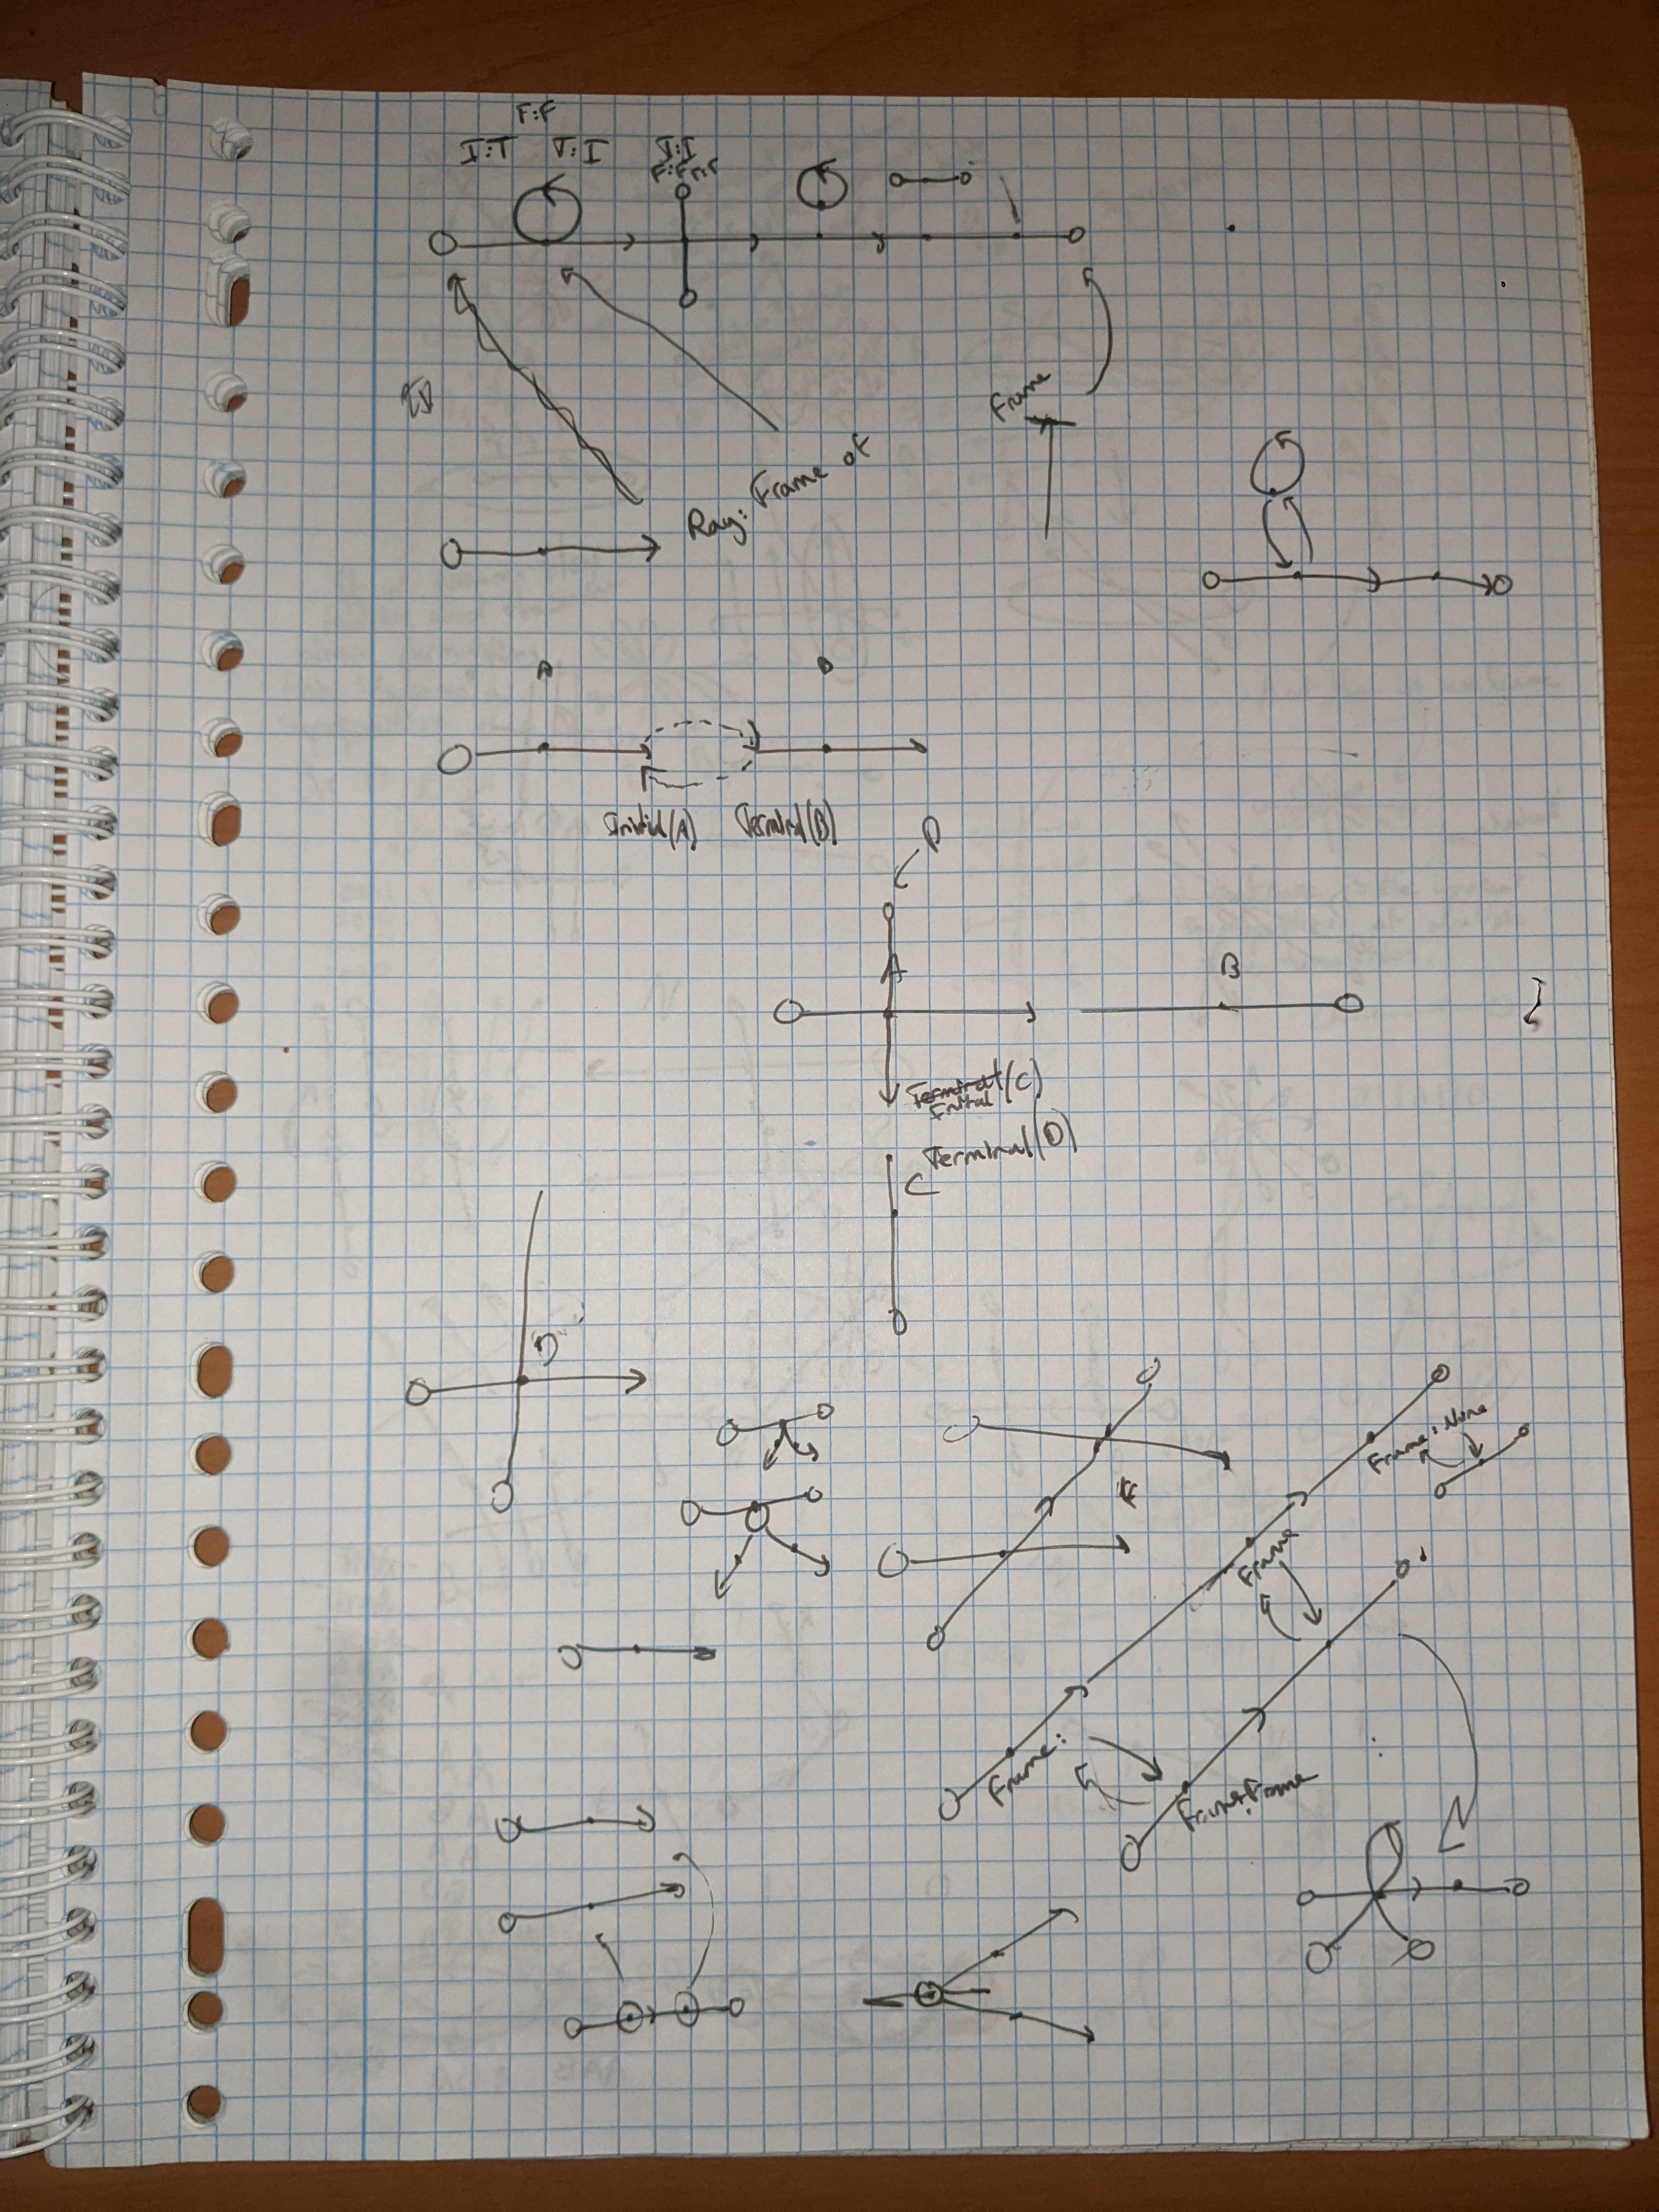 F:F
I:T T:I I:I
Frame
Ray: Frame of
A B
Initial(A) Terminal(B)
D
A B
Terminal(C)
Initial
Terminal(D)
C
D
Frame: None
F
Frame
Frame:
Frame: Frame